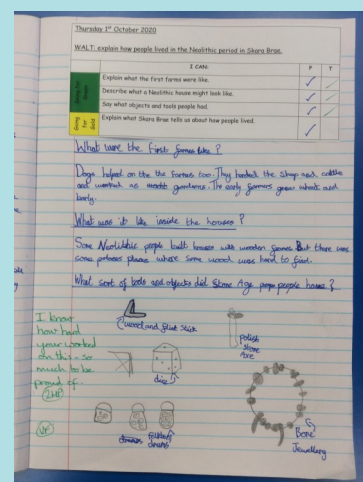 Thursday 1st October 2020
WALT: explain how people lived in the Neolithic period in Skara Brae.
I CAN: P T
Going for Green
Explain what the first farms were like.
Describe what a Neolithic house might look like.
Say what objects and tools people had.
Going for Gold
Explain what Skara Brae tells us about how people lived.
What were the first farms like?
Dogs helped on the farms too. They herded the sheep and cattle
and worked as guardians. The early farmers grew wheat and
barly.
What was it like inside the houses?
Some Neolithic people built houses with wooden frames But there was
some places where some wood was hard to find.
What sort of tools and objects did Stone Age people have?
wood and flint stick
polish
stone
Axe
dice
drums
Bone
Jewellery
I know
how hard
your worked
on this - so
much to be
proud of.
2HP
VF